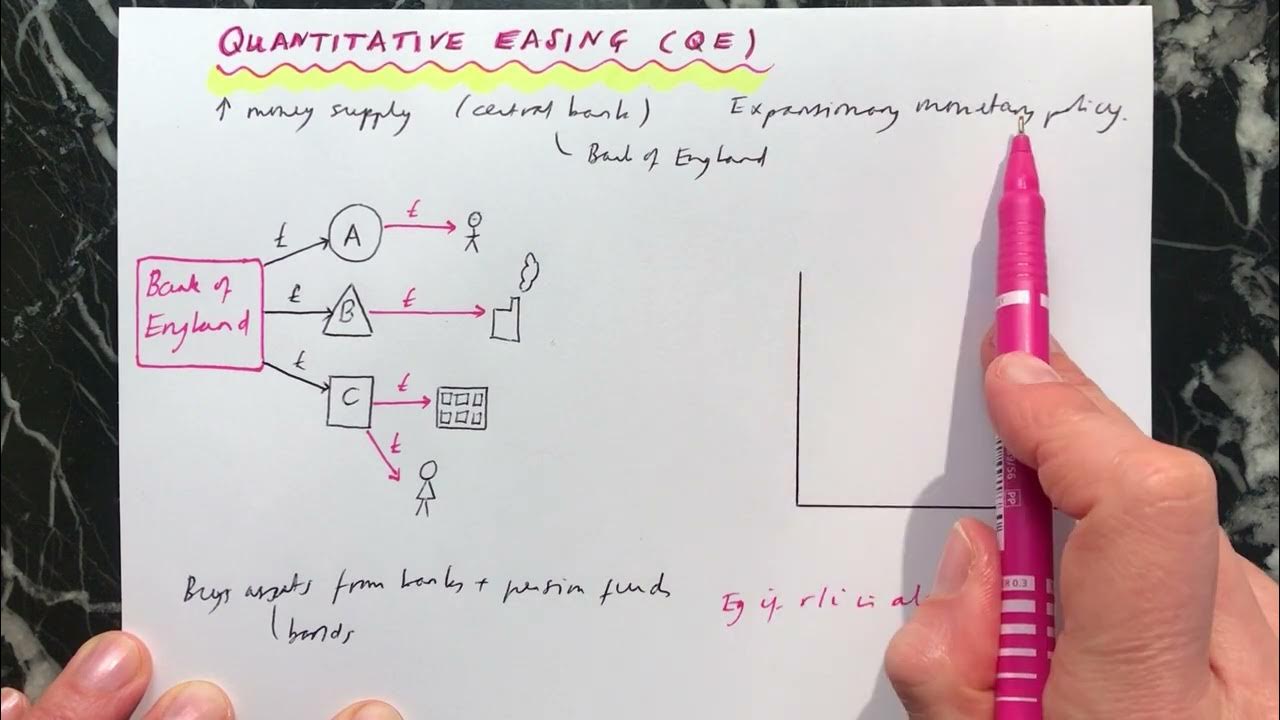 QUANTITATIVE EASING (QE)
↑ money supply (central bank) Expansionary monetary policy.
Bank of England
£ A £
Bank of England
£ B £
£ C £
£
Buys assets from banks + pension funds
bonds
Eg if r/i is al
0.3
PP